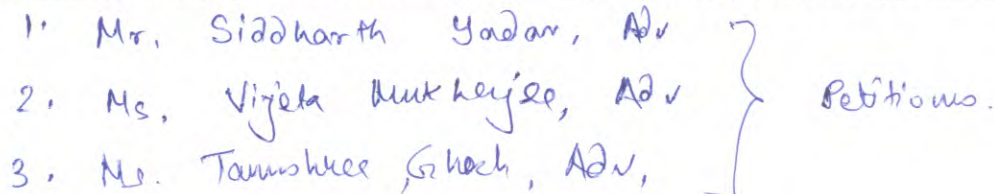 1. Mr. Siddharth Yadav, Adv
2. Ms. Vijeta Mukherjee, Adv
3. Ms. Tanushree Ghosh, Adv,
Petitions.